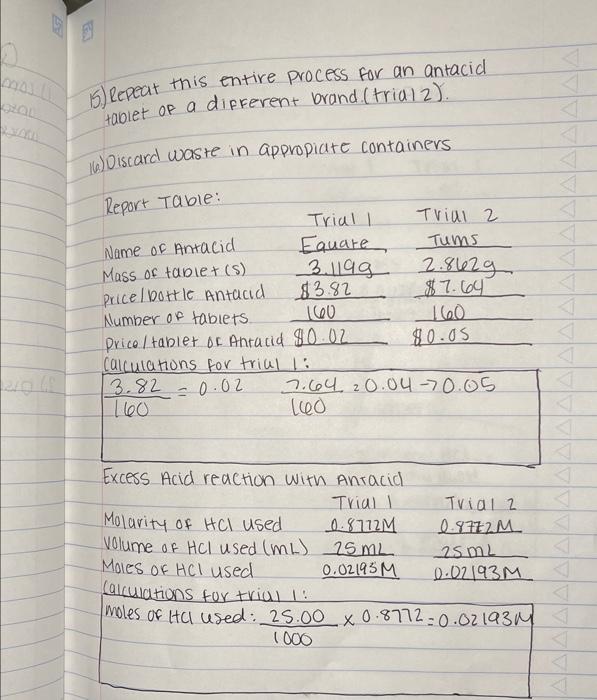 15) Repeat this entire process for an antacid
tablet of a different brand. (trial 2).
16) Discard waste in appropiate containers
Report Table:
Trial 1 Trial 2
Name of Antacid Equate Tums
Mass of tablet (s) 3.119g 2.862g
price/bottle Antacid $3.82 $7.64
Number of tablets 160 160
price/tablet of Antacid $0.02 $0.05
Calculations for trial 1:
3.82 = 0.02 7.64 = 0.04 → 0.05
160 160
Excess Acid reaction with Antacid
Trial 1 Trial 2
Molarity of HCl used 0.8772M 0.8772M
Volume of HCl used (mL) 25mL 25mL
Moles of HCl used 0.02195M 0.02193M
Calculations for trial 1:
moles of HCl used: 25.00 x 0.8772 = 0.02193M
1000